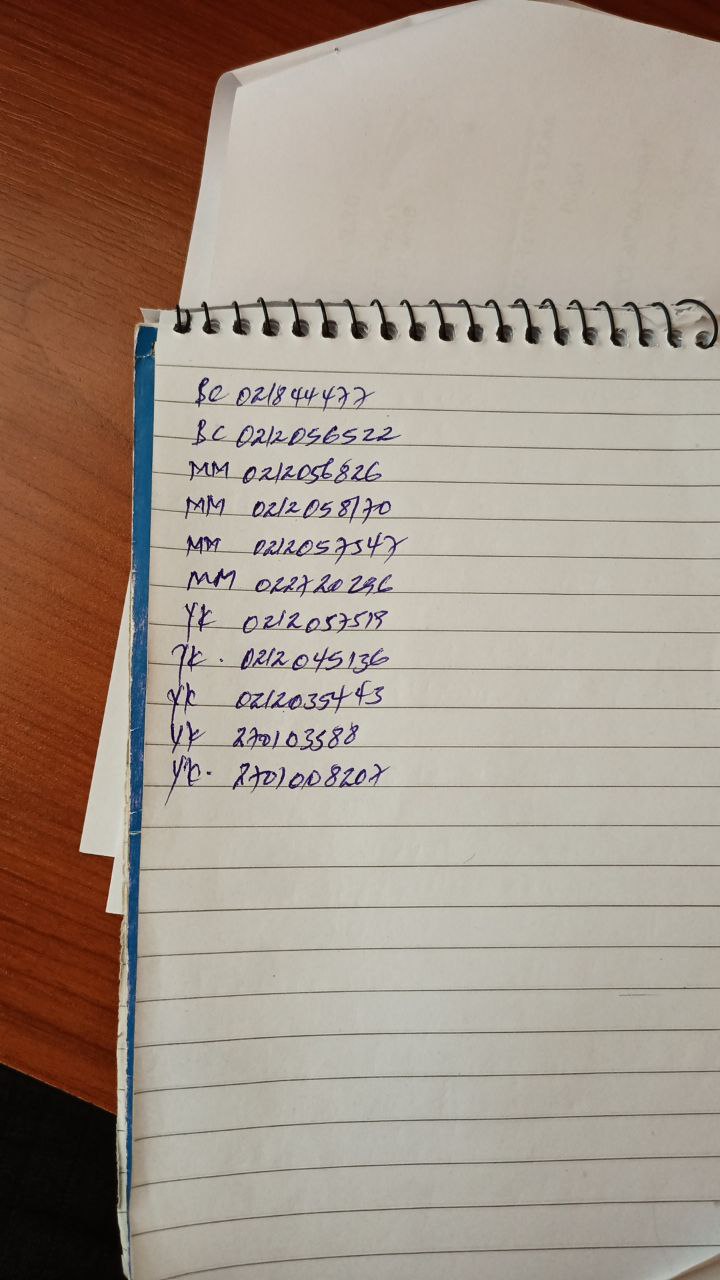 BC 021844477
BC 0212056522
MM 0212056826
MM 0212058170
MM 0212057547
MM 022720296
YK 0212057519
YK. 0212045136
YK 0212035443
YK 270103588
YK. 2701008207